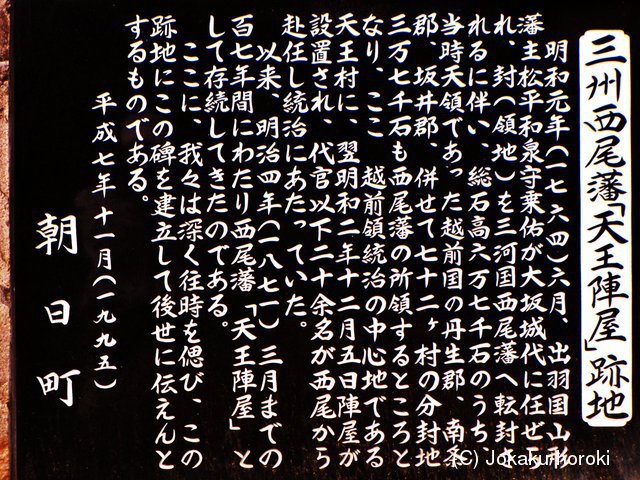 三州西尾藩「天王陣屋」跡地
明和元年(一七六四)六月、出羽国山形
藩主松平和泉守乗佑が大坂城代に任ぜら
れ、封(領地)を三河国西尾藩へ転封さ
れるに伴い、総石高六万七千石のうち、
当時天領であった越前国の丹生郡、南条
郡、坂井郡、併せて七十二ヶ村の分封地
三万七千石も西尾藩の所領するところと
なり、ここ 越前領統治の中心地である
天王村に、翌明和二年十二月五日陣屋が
設置され、代官以下二十余名が西尾から
赴任し統治にあたっていた。
以来、明治四年(一八七一)三月までの
百七年間にわたり西尾藩「天王陣屋」と
して存続してきたのである。
ここに、我々は深く往時を偲び、この
跡地にこの碑を建立して後世に伝えんと
するものである。
平成七年十一月(一九九五)
朝日町
(C) Jokakuhoroki